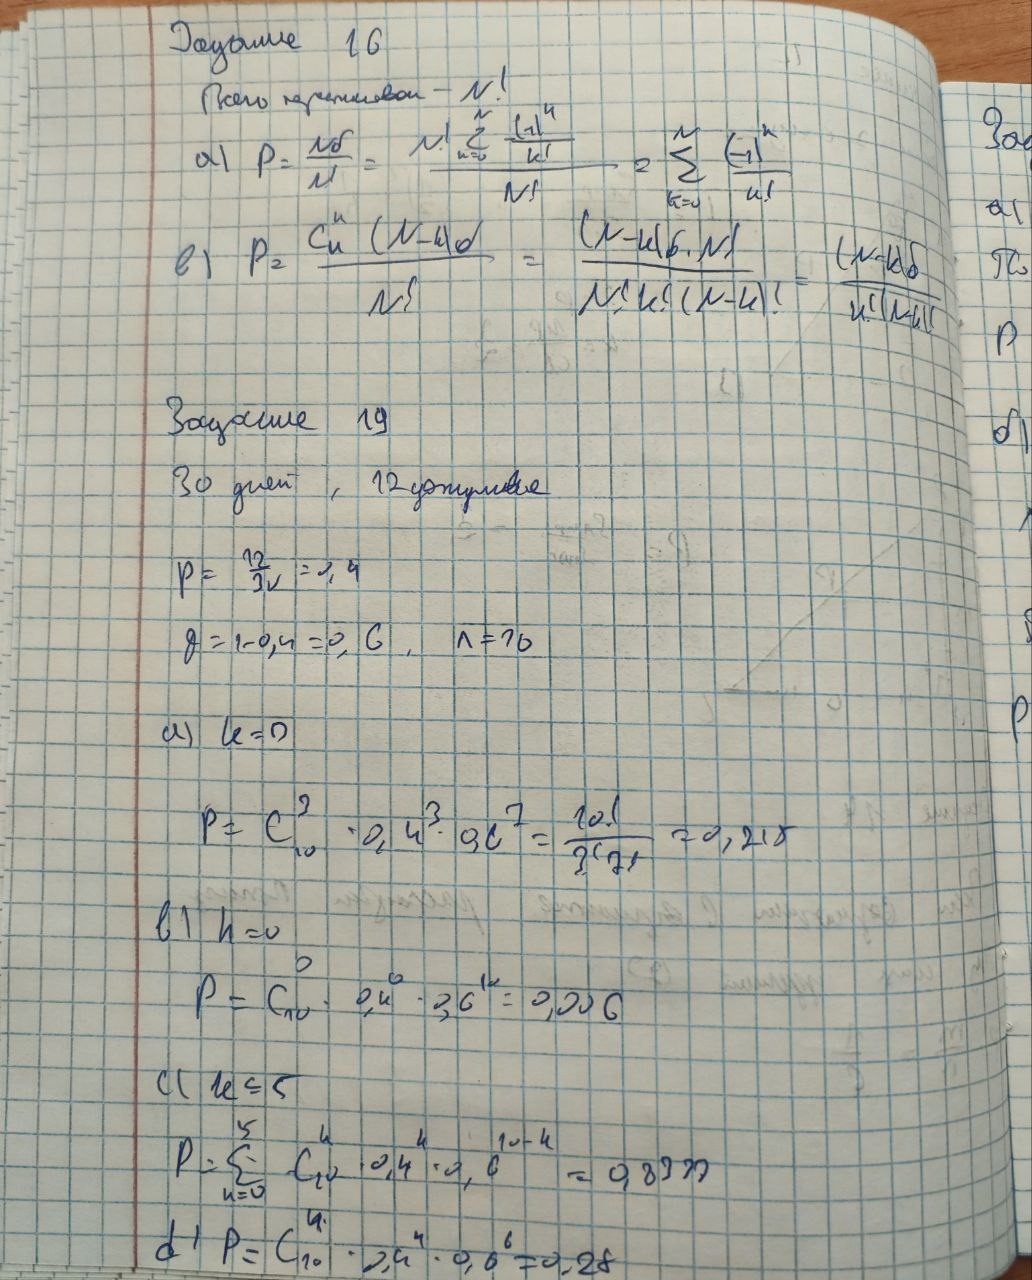 Задание 16
Всего перестановок - N!
a) P = Nб / N! = N! ∑_{k=0}^{N} (-1)^k / k! / N! = ∑_{k=0}^{N} (-1)^k / k!
в) P = C_N^k (N-k)б / N! = (N-k)б · N! / N! k! (N-k)! = (N-k)б / k! (N-k)!
Задание 19
30 дней, 12 дождливые
p = 12/30 = 0,4
q = 1-0,4 = 0,6, n = 10
a) k=3
P = C_{10}^3 · 0,4^3 · 0,6^7 = 10! / 3! 7! = 0,215
в) k=0
P = C_{10}^0 · 0,4^0 · 0,6^{10} = 0,006
c) k≤5
P = ∑_{k=0}^{5} C_{10}^k · 0,4^k · 0,6^{10-k} = 0,83
d) P = C_{10}^4 · 0,4^4 · 0,6^6 = 0,25
a)
P
б)
P